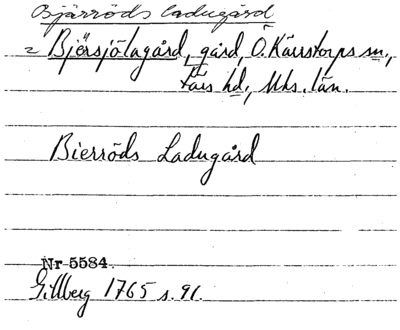 Bjärröds ladugård
= Bjersjölagård, gård, Ö. Kärrstorps sn,
Färs hd, Mhs. län.
Bierröds Ladugård
Nr 5584
Gillberg 1765 s. 91.